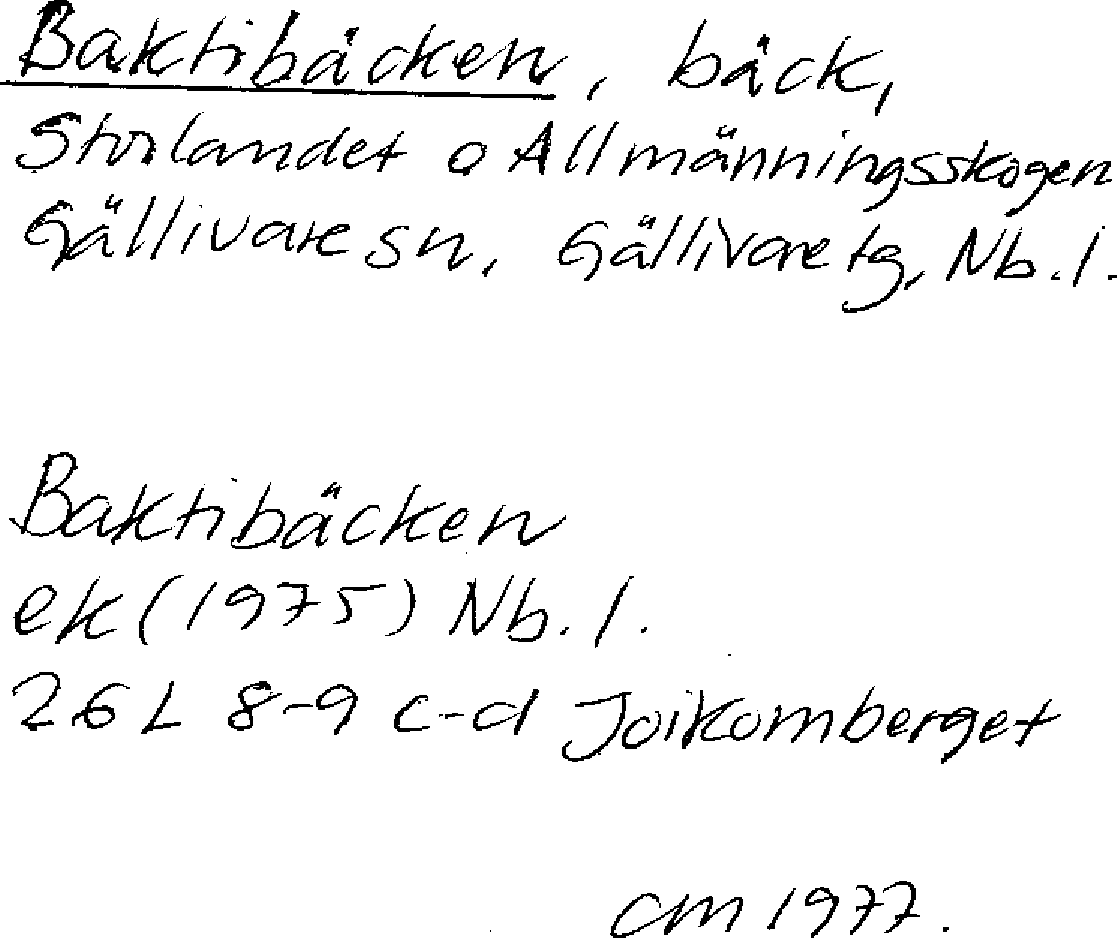 Baktibäcken, bäck,
Storlandet o Allmänningsskogen
Gällivare sn, Gällivare tg, Nb.l.
Baktibäcken
ek (1975) Nb.l.
26L 8-9 c-d Joikomberget
CM 1977.